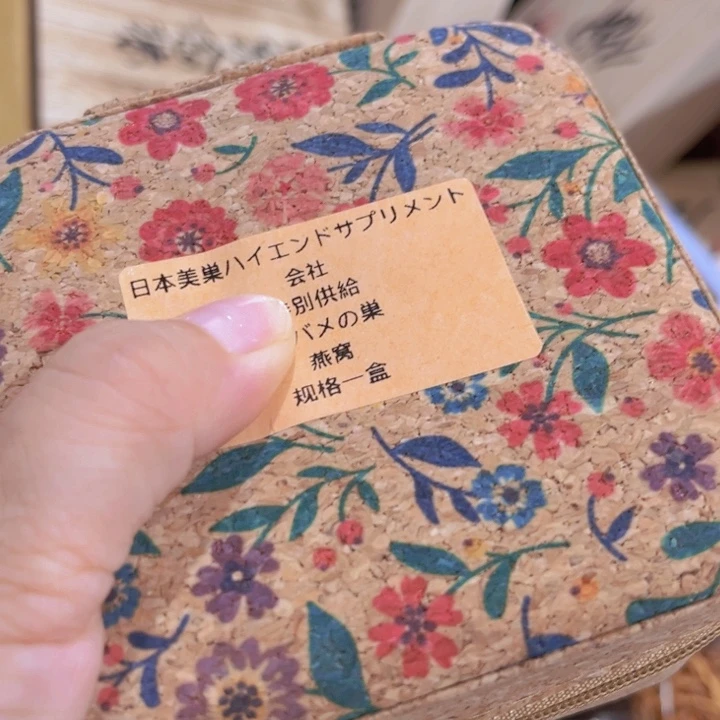 日本美巣ハイエンドサプリメント
会社
別供給
バメの巣
燕窩
规格一盒